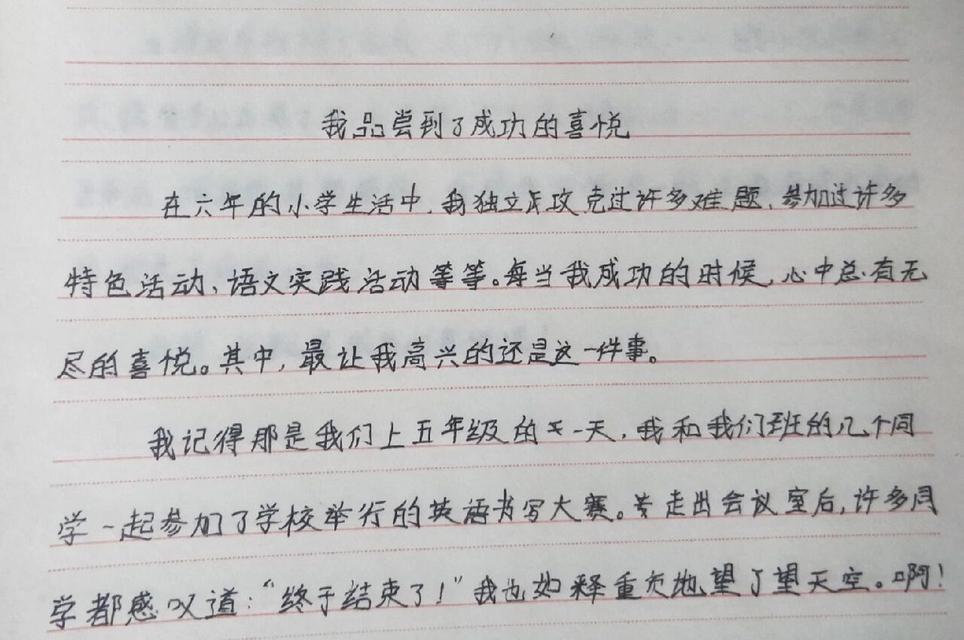 我品尝到了成功的喜悦
在六年的小学生活中，我独立攻克过许多难题，参加过许多
特色活动、语文实践活动等等。每当我成功的时候，心中总有无
尽的喜悦。其中，最让我高兴的还是这一件事。
我记得那是我们上五年级的一天，我和我们班的几个同
学一起参加了学校举行的英语书写大赛。走出会议室后，许多同
学都感叹道：“终于结束了！”我也如释重负地望了望天空。啊！